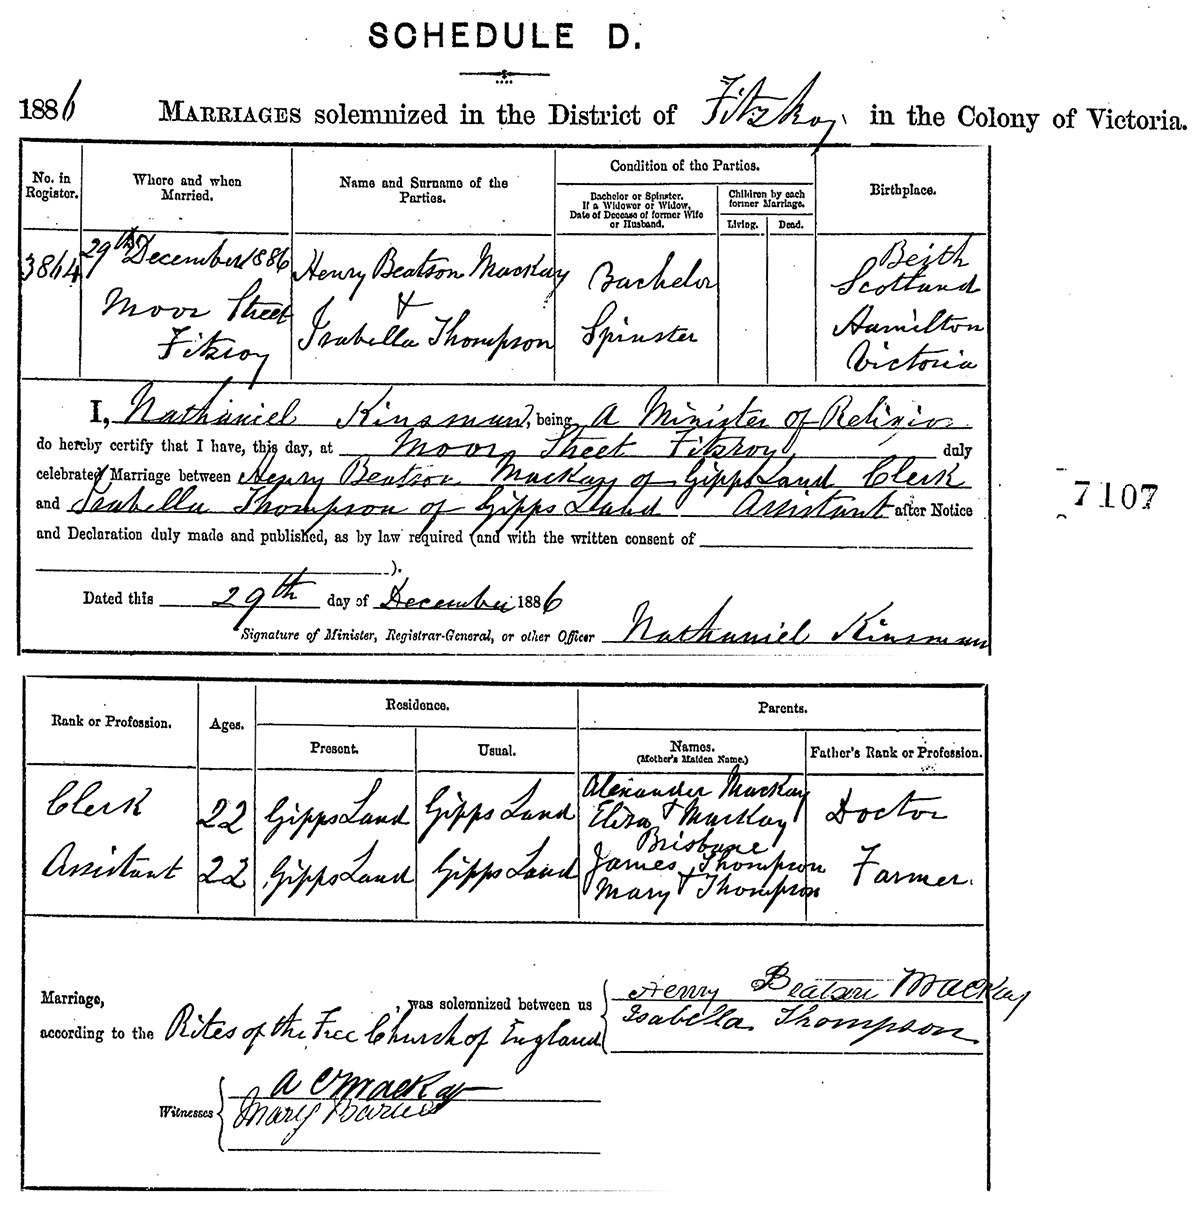 SCHEDULE D.
1886 MARRIAGES solemnized in the District of Fitzroy. in the Colony of Victoria.
No. in Register.
Where and when Married.
Name and Surname of the Parties.
Condition of the Parties.
Bachelor or Spinster. If a Widower or Widow, Date of Decease of former Wife or Husband.
Children by each former Marriage.
Living.
Dead.
Birthplace.
29th December 1886
Moor Street
Fitzroy
Henry Beatson MacKay
&
Isabella Thompson
Bachelor
Spinster
Beith
Scotland
Hamilton
Victoria
I, Nathaniel Kinsman, being a Minister of Religion
do hereby certify that I have, this day, at Moor Street Fitzroy duly
celebrated Marriage between Henry Beatson MacKay of Gipps Land Clerk
and Isabella Thompson of Gipps Land Assistant after Notice
and Declaration duly made and published, as by law required (and with the written consent of
).
Dated this 29th day of December 1886
Signature of Minister, Registrar-General, or other Officer Nathaniel Kinsman
7107
Rank or Profession.
Ages.
Residence.
Present.
Usual.
Parents.
Names.
(Mother's Maiden Name.)
Father's Rank or Profession.
Clerk 22 Gipps Land Gipps Land
Alexander MacKay
Eliza & MacKay
Brisbane
Doctor
Assistant 22 Gipps Land Gipps Land
James Thompson
Mary & Thompson
Farmer.
Marriage, was solemnized between us
according to the Rites of the Free Church of England
Henry Beatson MacKay
Isabella Thompson
Witnesses
A C MacKay
Mary Barnes